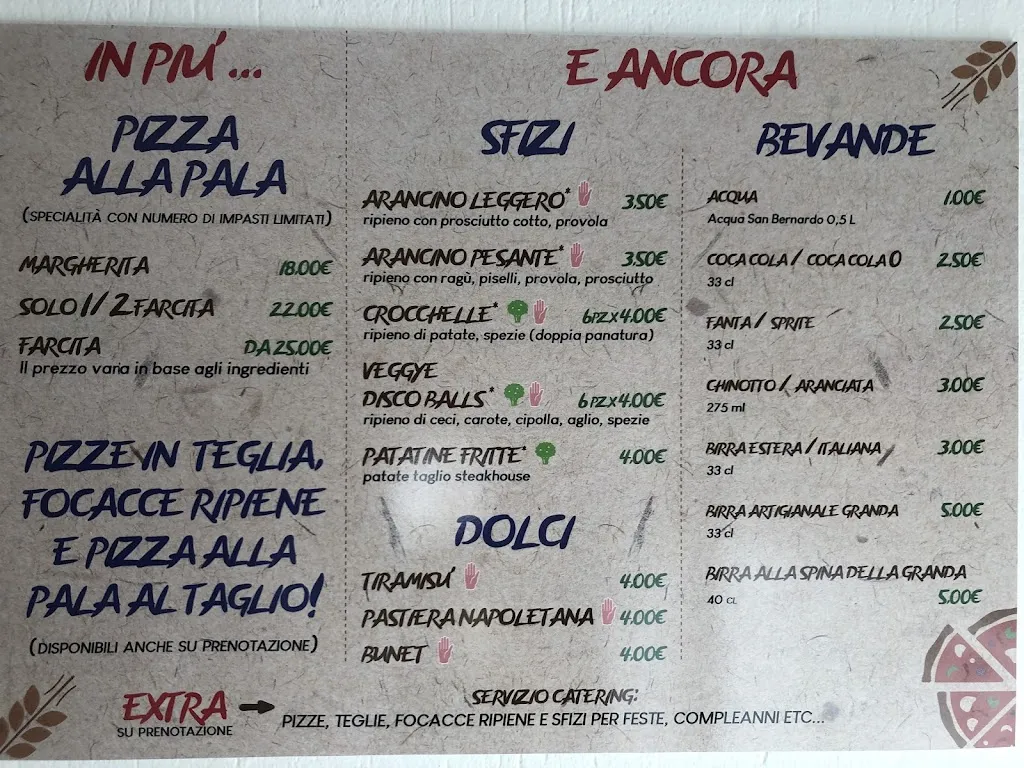 IN PIÚ ...
PIZZA
ALLA PALA
(SPECIALITÀ CON NUMERO DI IMPASTI LIMITATI)
MARGHERITA 18.00€
SOLO 1/2 FARCITA 22.00€
FARCITA DA 25.00€
Il prezzo varia in base agli ingredienti
PIZZE IN TEGLIA,
FOCACCE RIPIENE
E PIZZA ALLA
PALA AL TAGLIO!
(DISPONIBILI ANCHE SU PRENOTAZIONE)
E ANCORA
SFIZI
ARANCINO LEGGERO* 3.50€
ripieno con prosciutto cotto, provola
ARANCINO PESANTE* 3.50€
ripieno con ragù, piselli, provola, prosciutto
CROCCHELLE* 6PZ X 4.00€
ripieno di patate, spezie (doppia panatura)
VEGGYE
DISCO BALLS* 6PZ X 4.00€
ripieno di ceci, carote, cipolla, aglio, spezie
PATATINE FRITTE* 4.00€
patate taglio steakhouse
DOLCI
TIRAMISU' 4.00€
PASTIERA NAPOLETANA 4.00€
BUNET 4.00€
BEVANDE
ACQUA 1.00€
Acqua San Bernardo 0,5 L
COCA COLA / COCA COLA 0 2.50€
33 cl
FANTA / SPRITE 2.50€
33 cl
CHINOTTO / ARANCIATA 3.00€
275 ml
BIRRA ESTERA / ITALIANA 3.00€
33 cl
BIRRA ARTIGIANALE GRANDA 5.00€
33 cl
BIRRA ALLA SPINA DELLA GRANDA
40 CL 5.00€
EXTRA
SU PRENOTAZIONE
SERVIZIO CATERING:
PIZZE, TEGLIE, FOCACCE RIPIENE E SFIZI PER FESTE, COMPLEANNI ETC...